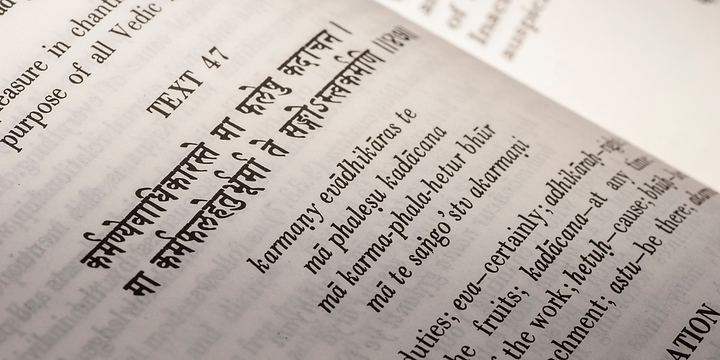 easure in chanti
purpose of all Vedic
TEXT 47
कर्मण्येवाधिकारस्ते मा फलेषु कदाचन ।
मा कर्मफलहेतुर्भूर्मा ते सङ्गोऽस्त्वकर्मणि ॥४७॥
karmaṇy evādhikāras te
mā phaleṣu kadācana
mā karma-phala-hetur bhūr
mā te saṅgo 'stv akarmaṇi
duties; eva—certainly; adhikāraḥ—right
he fruits; kadācana—at any time
the work; hetuḥ—cause; bhūḥ—b
chment; astu—be there;
ATION
of
Inac
auspic